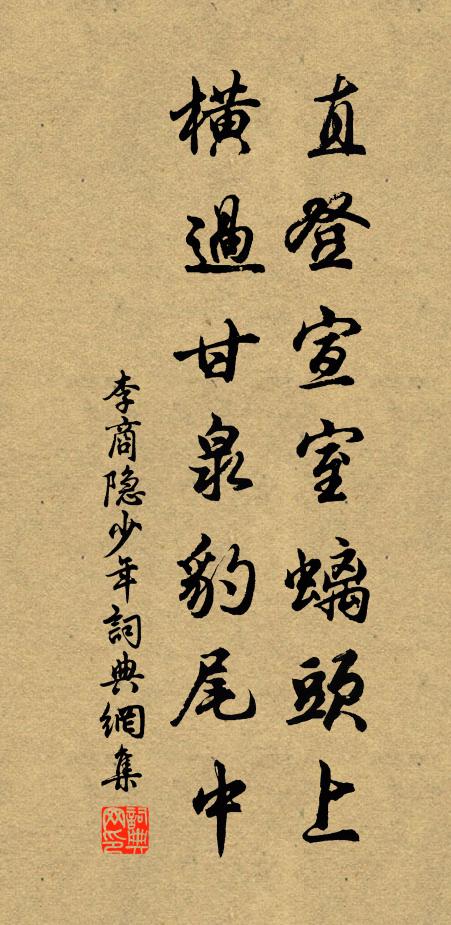 直登宣室螭頭上
橫過甘泉豹尾中
李商隐少年詞典網集
詞典網印